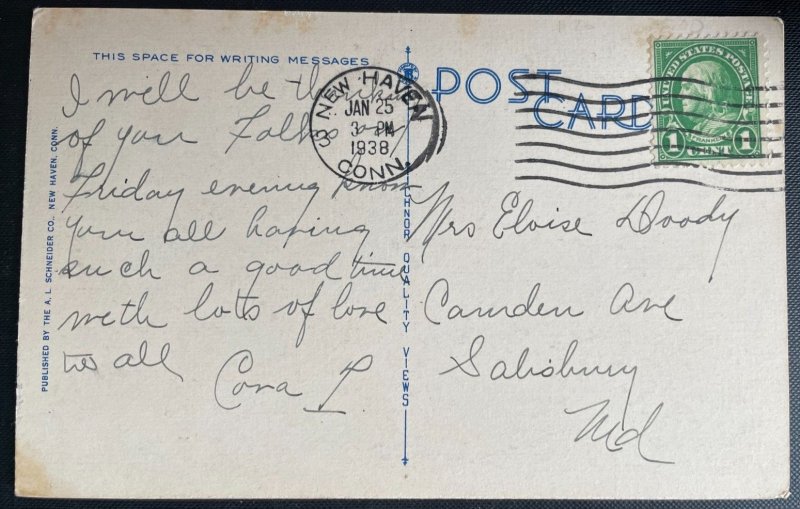 THIS SPACE FOR WRITING MESSAGES
I will be thinking
of you Folks
Friday evening know
you all having
such a good time
with lots of love
to all
Cora L
PUBLISHED BY THE A. L. SCHNEIDER CO., NEW HAVEN, CONN.
TICHNOR QUALITY VIEWS
POST
CARD
NEW HAVEN
3
JAN 25
3 PM
1938
CONN.
UNITED STATES POSTAGE
FRANKLIN
1 CENT 1
Mrs Eloise Doody
Camden Ave
Salisbury
Md